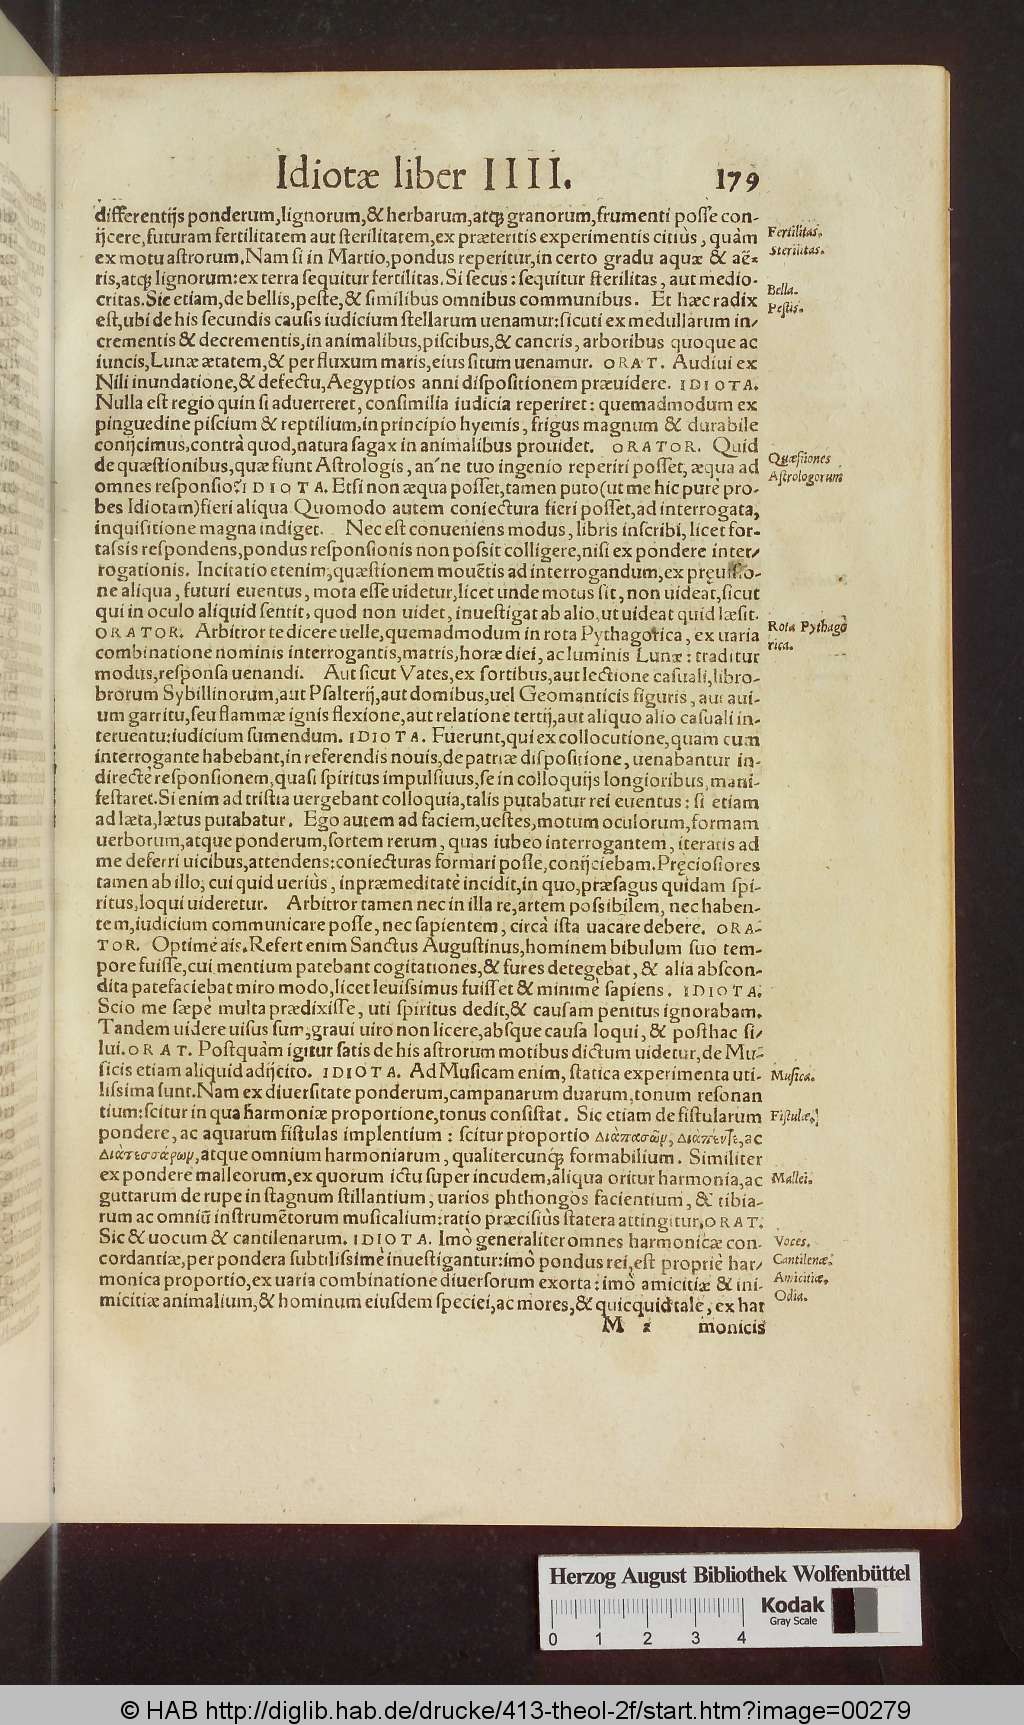 Idiotæ liber IIII. 179
differentijs ponderum, lignorum, & herbarum, atq; granorum, frumenti posse con-
ijcere, futuram fertilitatem aut sterilitatem, ex præteritis experimentis citiùs, quàm
Fertilitas.
ex motu astrorum. Nam si in Martio, pondus reperitur, in certo gradu aquæ & aë-
Sterilitas.
ris, atq; lignorum: ex terra sequitur fertilitas. Si secus: sequitur sterilitas, aut medio-
critas. Sic etiam, de bellis, peste, & similibus omnibus communibus. Et hæc radix
Bella.
est, ubi de his secundis causis iudicium stellarum uenamur: sicuti ex medullarum in-
Pestis.
crementis & decrementis, in animalibus, piscibus, & cancris, arboribus quoque ac
iuncis, Lunæ ætatem, & per fluxum maris, eius situm uenamur. ORAT. Audiui ex
Nili inundatione, & defectu, Aegyptios anni dispositionem præuidere. IDIOTA.
Nulla est regio quin si aduerteret, consimilia iudicia reperiret: quemadmodum ex
pinguedine piscium & reptilium, in principio hyemis, frigus magnum & durabile
conijcimus, contrà quod, natura sagax in animalibus prouidet. ORATOR. Quid
de quæstionibus, quæ fiunt Astrologis, an'ne tuo ingenio reperiri posset, æqua ad
Quæstiones
omnes responsio? IDIOTA. Etsi non æqua posset, tamen puto (ut me hic purè pro-
Astrologorum
bes Idiotam) fieri aliqua Quomodo autem coniectura fieri posset, ad interrogata,
inquisitione magna indiget. Nec est conueniens modus, libris inscribi, licet for-
tassis respondens, pondus responsionis non possit colligere, nisi ex pondere inter-
rogationis. Incitatio etenim, quæstionem mouẽtis ad interrogandum, ex pręuisio-
ne aliqua, futuri euentus, mota esse uidetur, licet unde motus sit, non uideat, sicut
qui in oculo aliquid sentit, quod non uidet, inuestigat ab alio, ut uideat quid læsit.
ORATOR. Arbitror te dicere uelle, quemadmodum in rota Pythagorica, ex uaria
Rota Pythago
combinatione nominis interrogantis, matris, horæ diei, ac luminis Lunæ: traditur
rica.
modus, responsa uenandi. Aut sicut Vates, ex sortibus, aut lectione casuali, libro-
brorum Sybillinorum, aut Psalterij, aut domibus, uel Geomanticis figuris, aut aui-
um garritu, seu flammæ ignis flexione, aut relatione tertij, aut aliquo alio casuali in-
teruentu: iudicium sumendum. IDIOTA. Fuerunt, qui ex collocutione, quam cum
interrogante habebant, in referendis nouis, de patriæ dispositione, uenabantur in-
directè responsionem, quasi spiritus impulsiuus, se in colloquijs longioribus, mani-
festaret. Si enim ad tristia uergebant colloquia, talis putabatur rei euentus: si etiam
ad læta, lætus putabatur. Ego autem ad faciem, uestes, motum oculorum, formam
uerborum, atque ponderum, sortem rerum, quas iubeo interrogantem, iteratis ad
me deferri uicibus, attendens: coniecturas formari posse, conijciebam. Pręciosiores
tamen ab illo, cui quid ueriùs, inpræmeditatè incidit, in quo, præsagus quidam spi-
ritus, loqui uideretur. Arbitror tamen nec in illa re, artem possibilem, nec haben-
tem, iudicium communicare posse, nec sapientem, circà ista uacare debere. ORA-
TOR. Optimè ais. Refert enim Sanctus Augustinus, hominem bibulum suo tem-
pore fuisse, cui mentium patebant cogitationes, & fures detegebat, & alia abscon-
dita patefaciebat miro modo, licet leuissimus fuisset & minimè sapiens. IDIOTA.
Scio me sæpè multa prædixisse, uti spiritus dedit, & causam penitus ignorabam.
Tandem uidere uisus sum, graui uiro non licere, absque causa loqui, & posthac si-
lui. ORAT. Postquàm igitur satis de his astrorum motibus dictum uidetur, de Mu-
sicis etiam aliquid adijcito. IDIOTA. Ad Musicam enim, statica experimenta uti-
Musica.
lissima sunt. Nam ex diuersitate ponderum, campanarum duarum, tonum resonan
tium: scitur in qua harmoniæ proportione, tonus consistat. Sic etiam de fistularum
Fistulæ.
pondere, ac aquarum fistulas implentium: scitur proportio διαπασῶν, διαπέντε, ac
διατεσσάρων, atque omnium harmoniarum, qualitercunq; formabilium. Similiter
ex pondere malleorum, ex quorum ictu super incudem, aliqua oritur harmonia, ac
Mallei.
guttarum de rupe in stagnum stillantium, uarios phthongos facientium, & tibia-
rum ac omniũ instrumẽtorum musicalium: ratio præcisiùs statera attingitur. ORAT.
Sic & uocum & cantilenarum. IDIOTA. Imò generaliter omnes harmonicæ con-
Voces.
cordantiæ, per pondera subtilissimè inuestigantur: imò pondus rei, est propriè har-
Cantilenæ.
monica proportio, ex uaria combinatione diuersorum exorta: imò amicitiæ & ini-
Amicitiæ.
micitiæ animalium, & hominum eiusdem speciei, ac mores, & quicquid tale, ex har
Odia.
M 2 monicis
Herzog August Bibliothek Wolfenbüttel
Kodak
Gray Scale
0 1 2 3 4
© HAB http://diglib.hab.de/drucke/413-theol-2f/start.htm?image=00279